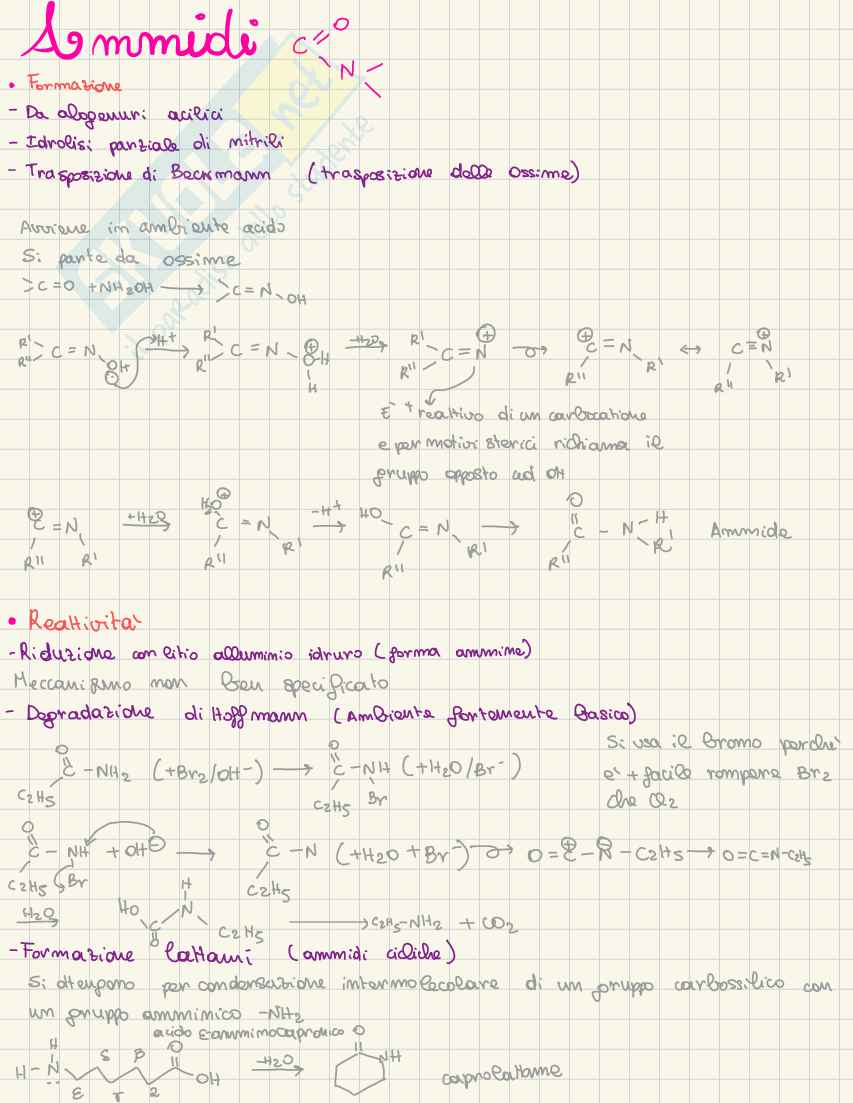 Ammidi C=O N
• Formazione
- Da alogenuri acilici
- Idrolisi parziale di nitrili
- Trasposizione di Beckmann (trasposizione delle ossime)
SKUOLA.net
il paradiso dello studente
Avviene in ambiente acido
Si parte da ossime
>C=O +NH2OH → >C=N-OH
R' R'' C=N OH H+ → R' R'' C=N ⊕OH H -H2O → R' R'' C=N ⊕ → ⊕ C=N R'' R' ↔ C≡N ⊕ R'' R'
E' + reattivo di un carbocatione
e per motivi sterici richiama il
gruppo opposto ad OH
⊕ C=N R'' R' +H2O → H2O ⊕ C=N R'' R' -H+ → HO C=N R'' R' → O C - N H R' R'' Ammide
• Reattività
- Riduzione con litio alluminio idruro (forma ammine)
Meccanismo non ben specificato
- Degradazione di Hoffmann (Ambiente fortemente basico)
Si usa il bromo perchè
è + facile rompere Br2
che Cl2
O C -NH2 C2H5 (+Br2/OH-) → O C -NH Br C2H5 (+H2O/Br-)
O C - NH Br C2H5 + OH⊖ → O C - N C2H5 (+H2O + Br-) → O=C⊕-N⊖-C2H5 → O=C=N-C2H5
H2O → HO C O N H C2H5 → C2H5-NH2 + CO2
- Formazione lattami (ammidi cicliche)
Si ottengono per condensazione intermolecolare di un gruppo carbossilico con
un gruppo amminico -NH2
acido ε-amminocapronico
H-N H ε δ γ β 2 O OH -H2O → O NH caprolattame